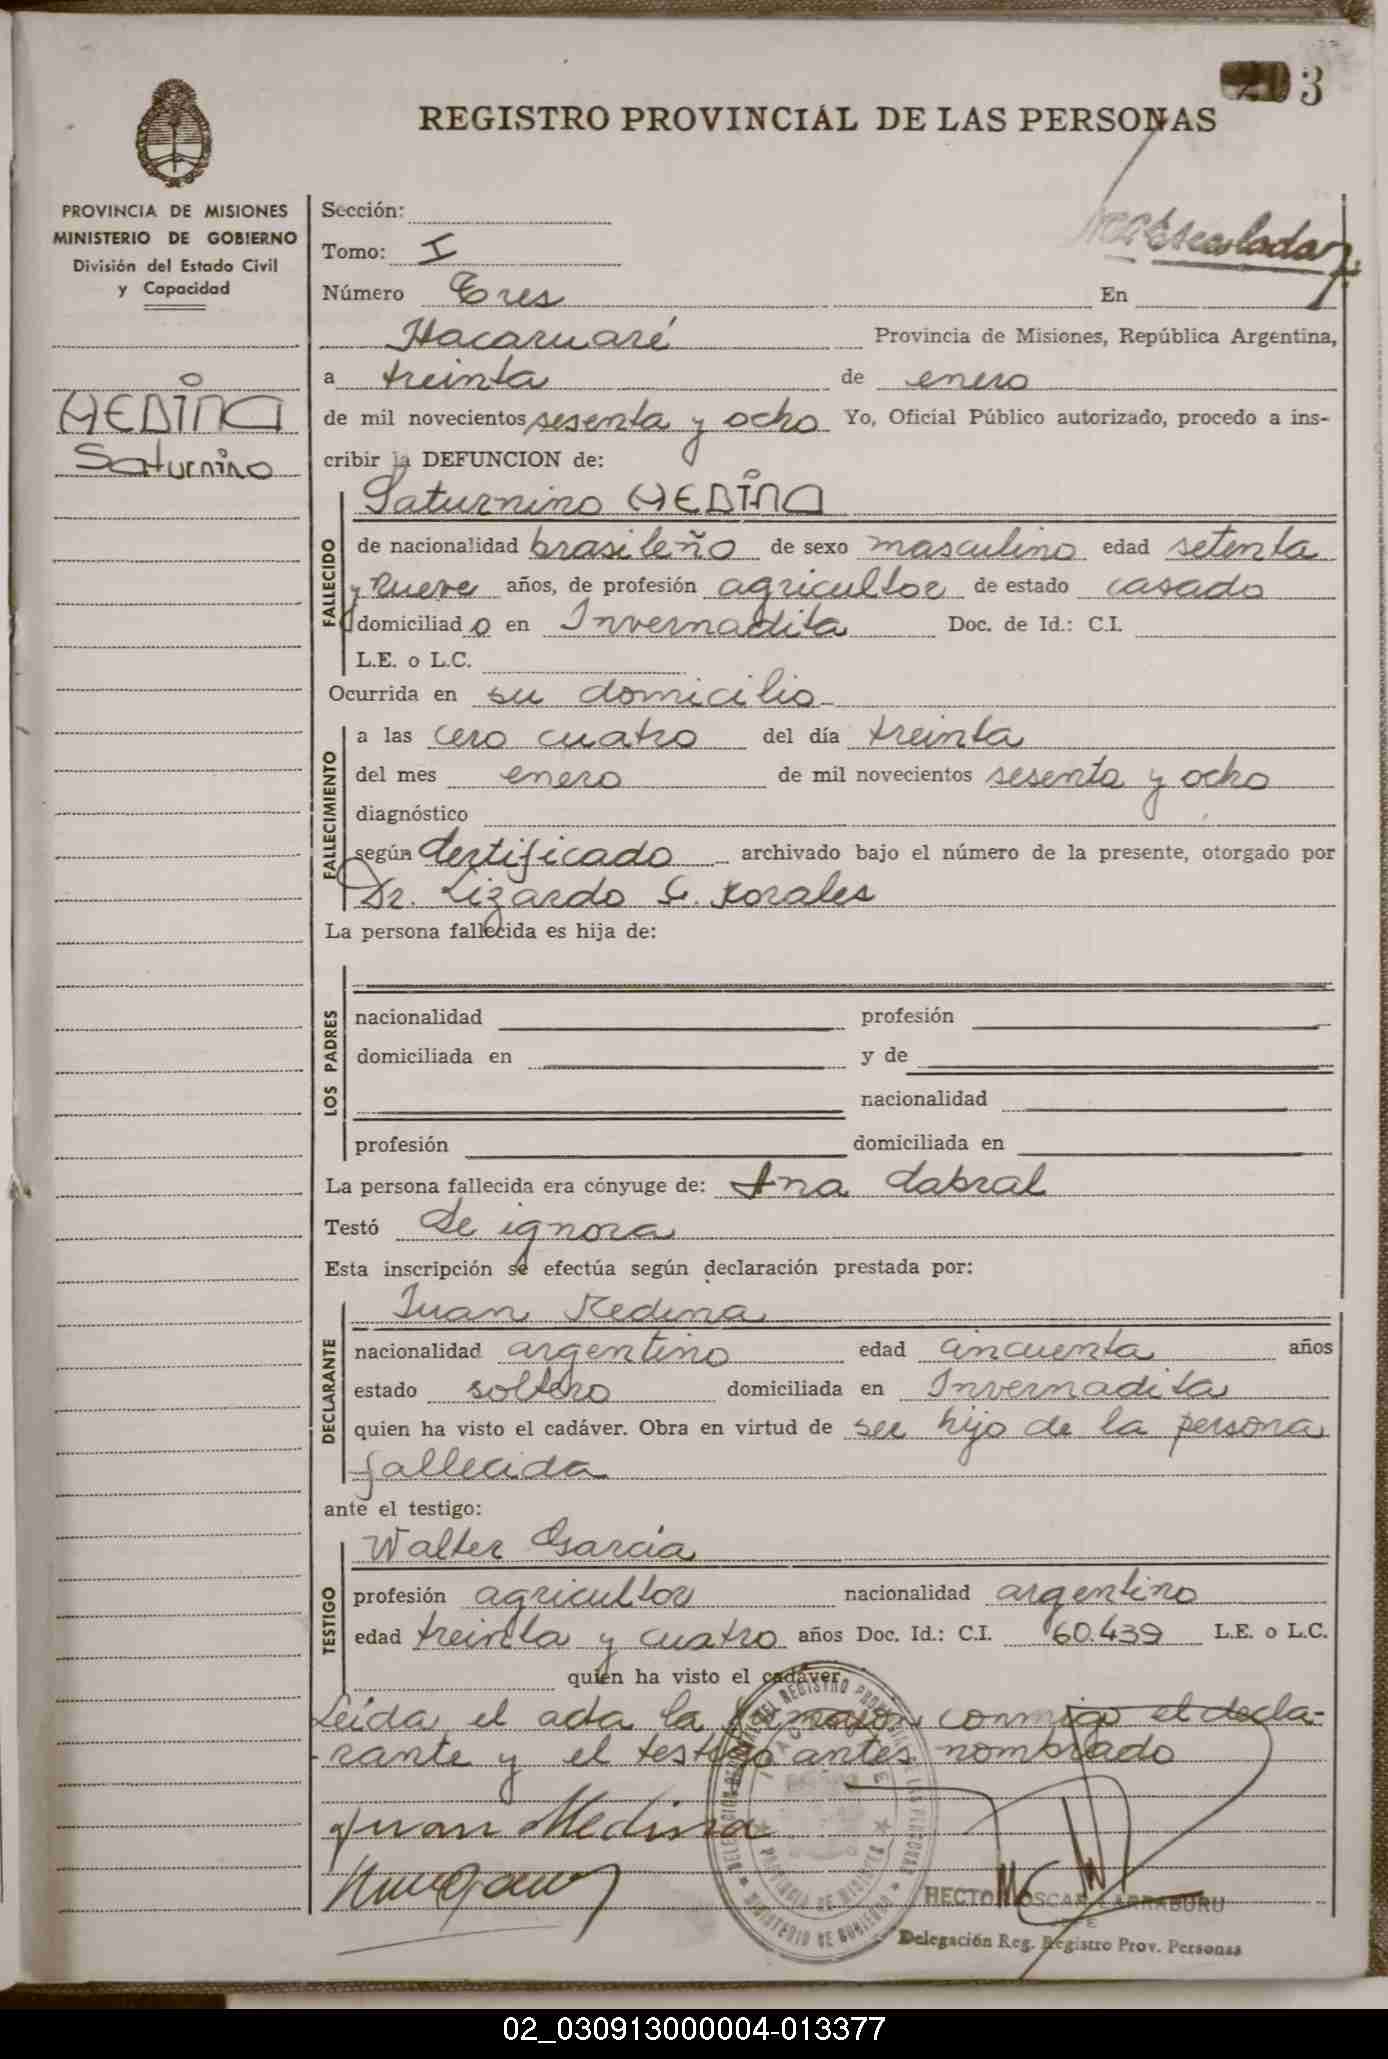 3
REGISTRO PROVINCIAL DE LAS PERSONAS
PROVINCIA DE MISIONES
MINISTERIO DE GOBIERNO
División del Estado Civil
y Capacidad
MEDINA
Saturnino
Sección:
Tomo: I
Número Tres En
Itacaruaré Provincia de Misiones, República Argentina,
a treinta de enero
de mil novecientos sesenta y ocho Yo, Oficial Público autorizado, procedo a ins-
cribir la DEFUNCION de:
FALLECIDO
Saturnino MEDINA
de nacionalidad brasileño de sexo masculino edad setenta
y nueve años, de profesión agricultor de estado casado
domiciliado en Invernadita Doc. de Id.: C.I.
L.E. o L.C.
Ocurrida en su domicilio
FALLECIMIENTO
a las cero cuatro del día treinta
del mes enero de mil novecientos sesenta y ocho
diagnóstico
según Certificado archivado bajo el número de la presente, otorgado por
Dr. Lizardo
La persona fallecida es hija de:
LOS PADRES
nacionalidad profesión
domiciliada en y de
nacionalidad
profesión domiciliada en
La persona fallecida era cónyuge de: Ana Cabral
Testó Se ignora
Esta inscripción se efectúa según declaración prestada por:
DECLARANTE
Juan Medina
nacionalidad argentino edad cincuenta años
estado soltero domiciliada en Invernadita
quien ha visto el cadáver. Obra en virtud de ser hijo de la persona
fallecida
ante el testigo:
TESTIGO
Walter Garcia
profesión agricultor nacionalidad argentino
edad treinta y cuatro años Doc. Id.: C.I. 60.439 L.E. o L.C.
quien ha visto el cadáver
Leída el acta la firmaron conmigo el decla-
rante y el testigo antes nombrado
Juan Medina
HECTOR OSCAR LARRABURU
JEFE
Delegación Reg. Registro Prov. Personas
PROVINCIA DE MISIONES
MINISTERIO DE GOBIERNO
02_030913000004-013377